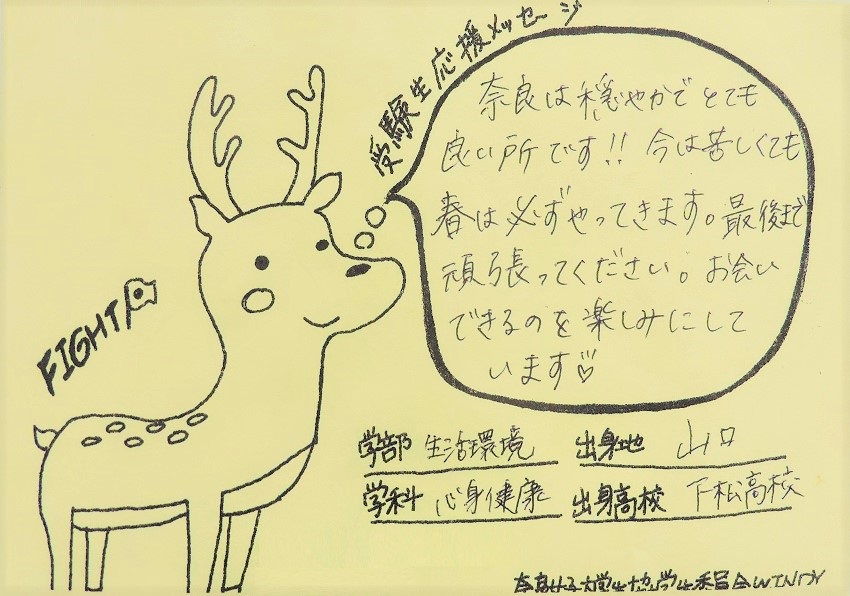 受験生応援メッセージ
奈良は穏やかでとても
良い所です!! 今は苦しくても
春は必ずやってきます。最後まで
頑張ってください。お会い
できるのを楽しみにして
います♡
FIGHT!
学部 生活環境 出身地 山口
学科 心身健康 出身高校 下松高校
奈良女子大学生協学生委員会WINDY